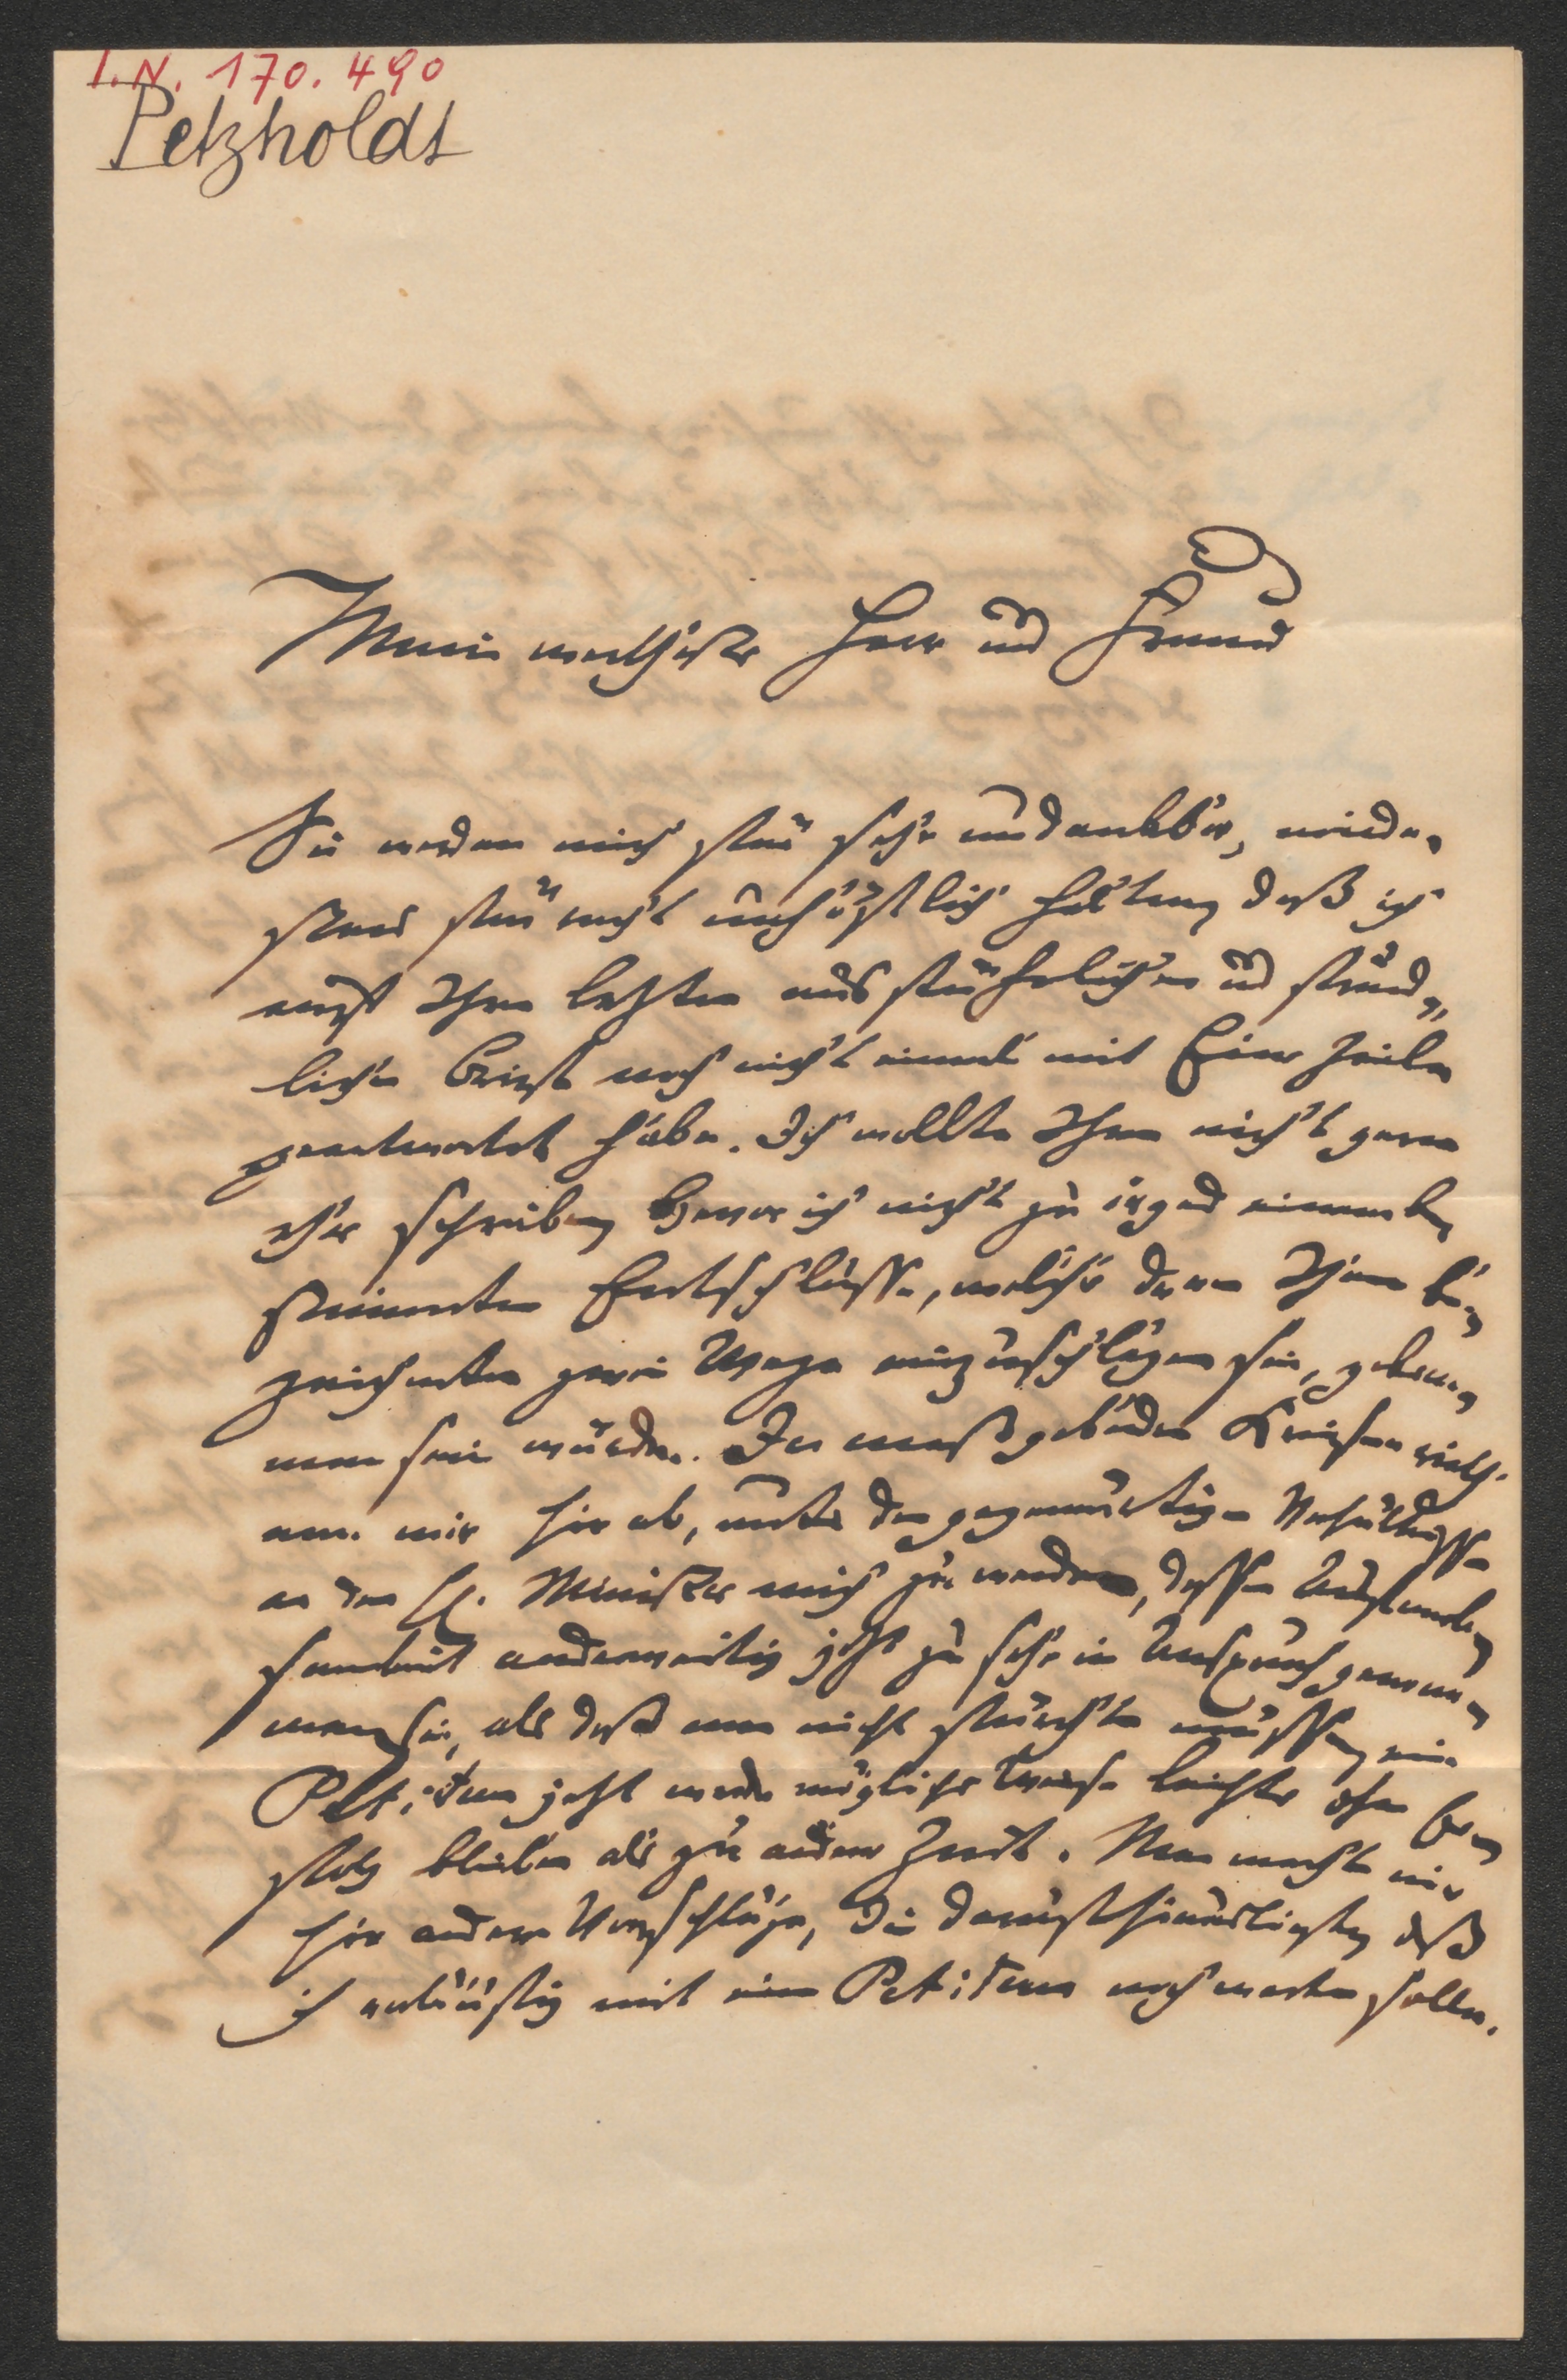 I.N. 170.490
Petzholdt
Mein werthester Herr und Freund
Sie werden mich für sehr undankbar, minde-
stens für recht unhöflich halten, daß ich
auf Ihren letzten ausführlichen und freund-
lichen Brief noch nicht einmal mit Einer Zeile
geantwortet habe. Ich wollte Ihnen nicht gern
eher schreiben, bevor ich nicht zu irgend einem be-
stimmten Entschlusse, welcher der von Ihnen be-
zeichneten zwei Wege einzuschlagen sei, gekom-
men sein würde. In maßgebenden Kreisen rieth
man mir hier ab, unter den gegenwärtigen Verhältnissen
an den H. Minister mich zu wenden, dessen Aufmerk-
samkeit anderweitig jetzt zu sehr in Anspruch genom-
men sei, als daß man nicht fürchten müsse, ein
Petitum jetzt werde möglicher Weise leichter ohne Er-
folg bleiben als zu anderer Zeit. Man machte mir
hier andere Vorschläge, die darauf hinausliefen, daß
ich vorläufig mit einem Petitum noch warten solle.